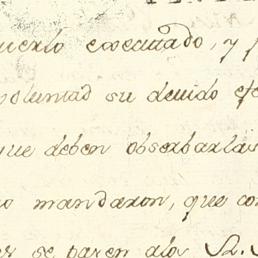 uerlo executado, y
voluntad su devido efe
que deben obserbarlas
o mandaron, que con
se paren a los S.S.